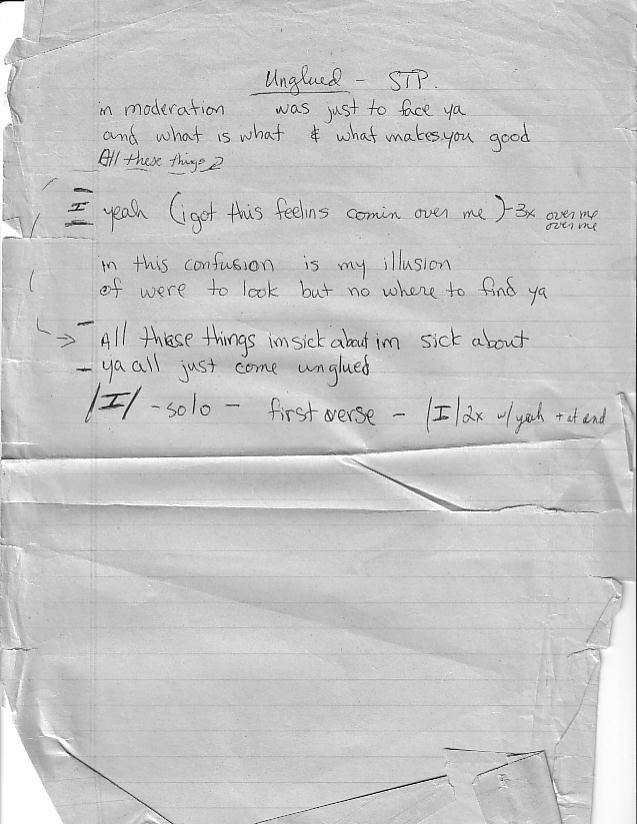 Unglued - STP.
in moderation was just to face ya
and what is what & what makes you good
All these things 2
I yeah (i got this feelins comin over me)-3x over me
over me
in this confusion is my illusion
of were to look but no where to find ya
→ All these things im sick about im sick about
- ya all just come unglued
|I| - solo - first verse - |I| 2x w/ yeah + at end